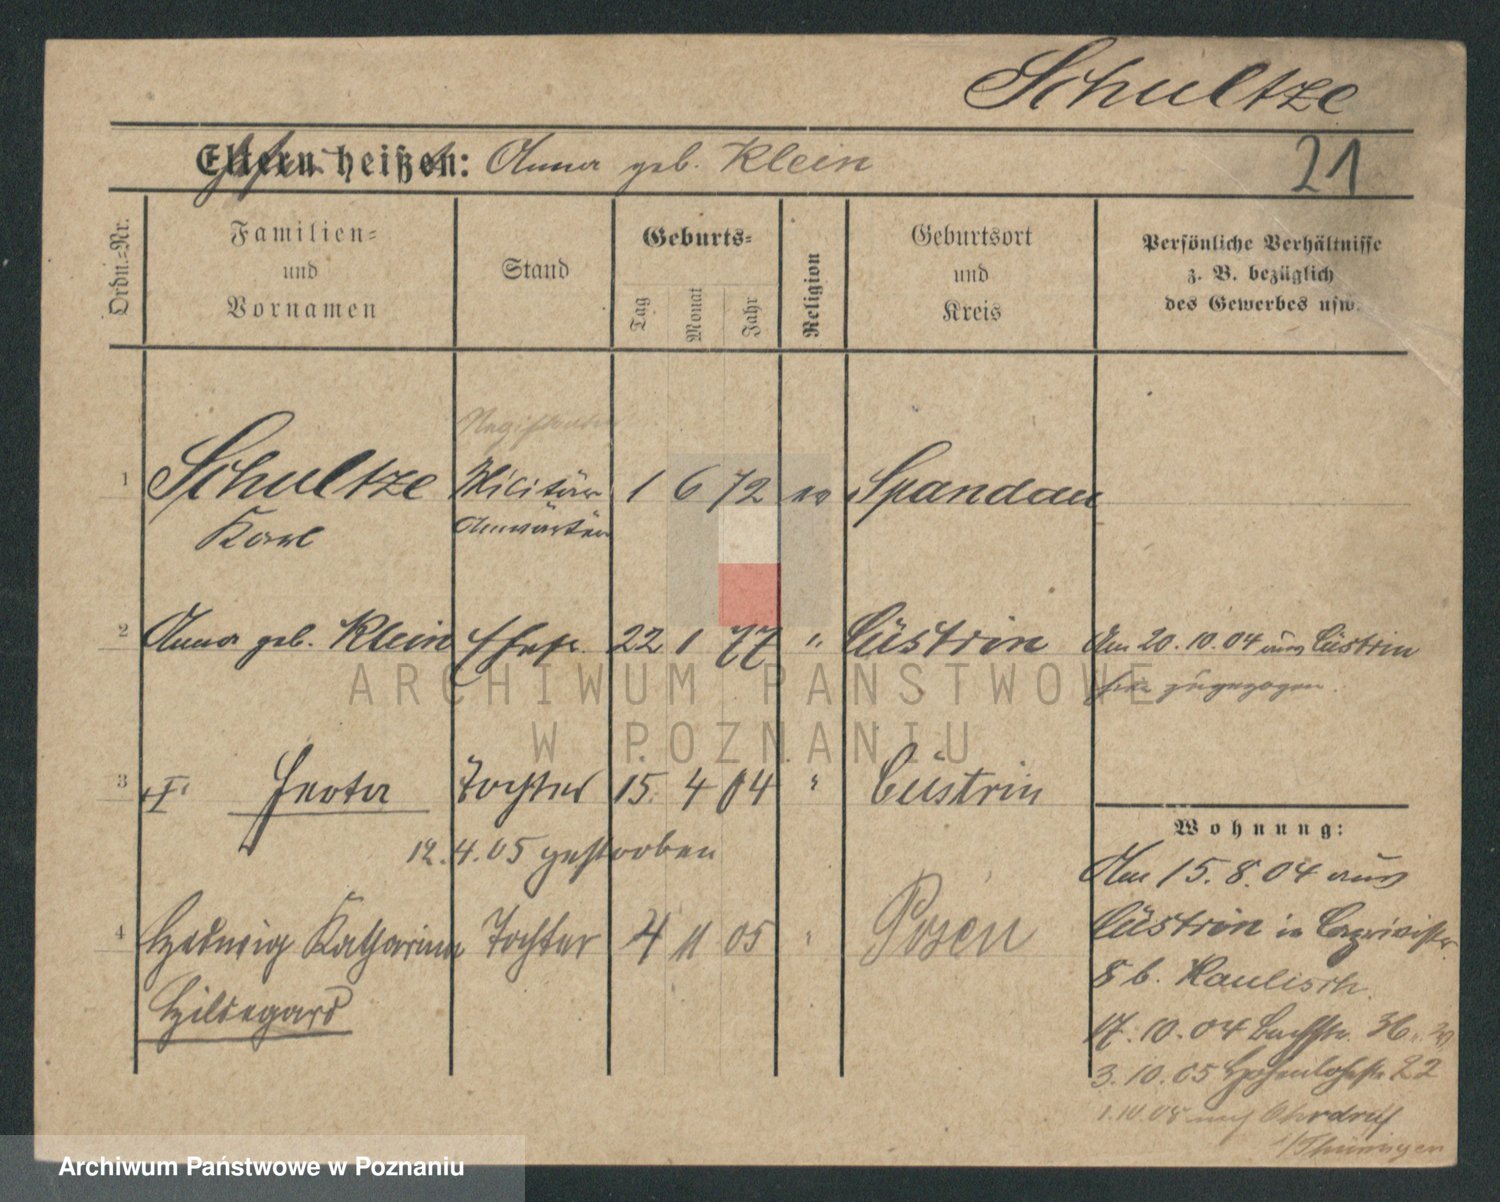 Schultze
Eltern heißen: Anna geb. Klein
21
Ordn.-Nr.
Familien-
und
Vornamen
Stand
Geburts-
Tag
Monat
Jahr
Religion
Geburtsort
und
Kreis
Persönliche Verhältnisse
z. B. bezüglich
des Gewerbes usw.
1 Schultze Militär 1 6 72 ev Spandau
Karl Anwärter
2 Anna geb. Klein Ehefr. 22 1 77 " Cüstrin Am 20.10.04 aus Cüstrin
zugezogen.
3 Tochter 15. 4 04 " Cüstrin
12.4.05 gestorben
Wohnung:
Am 15.8.04 aus
4 Hedwig Katharina Tochter 4 11 05 Posen
Cüstrin in
Hildegard
8 b. Kaulisch
17.10.04 36
3.10.05 Hohenlohestr. 22
nach Ohrdruf
i/Thüringen
ARCHIWUM PAŃSTWOWE
W POZNANIU
Archiwum Państwowe w Poznaniu